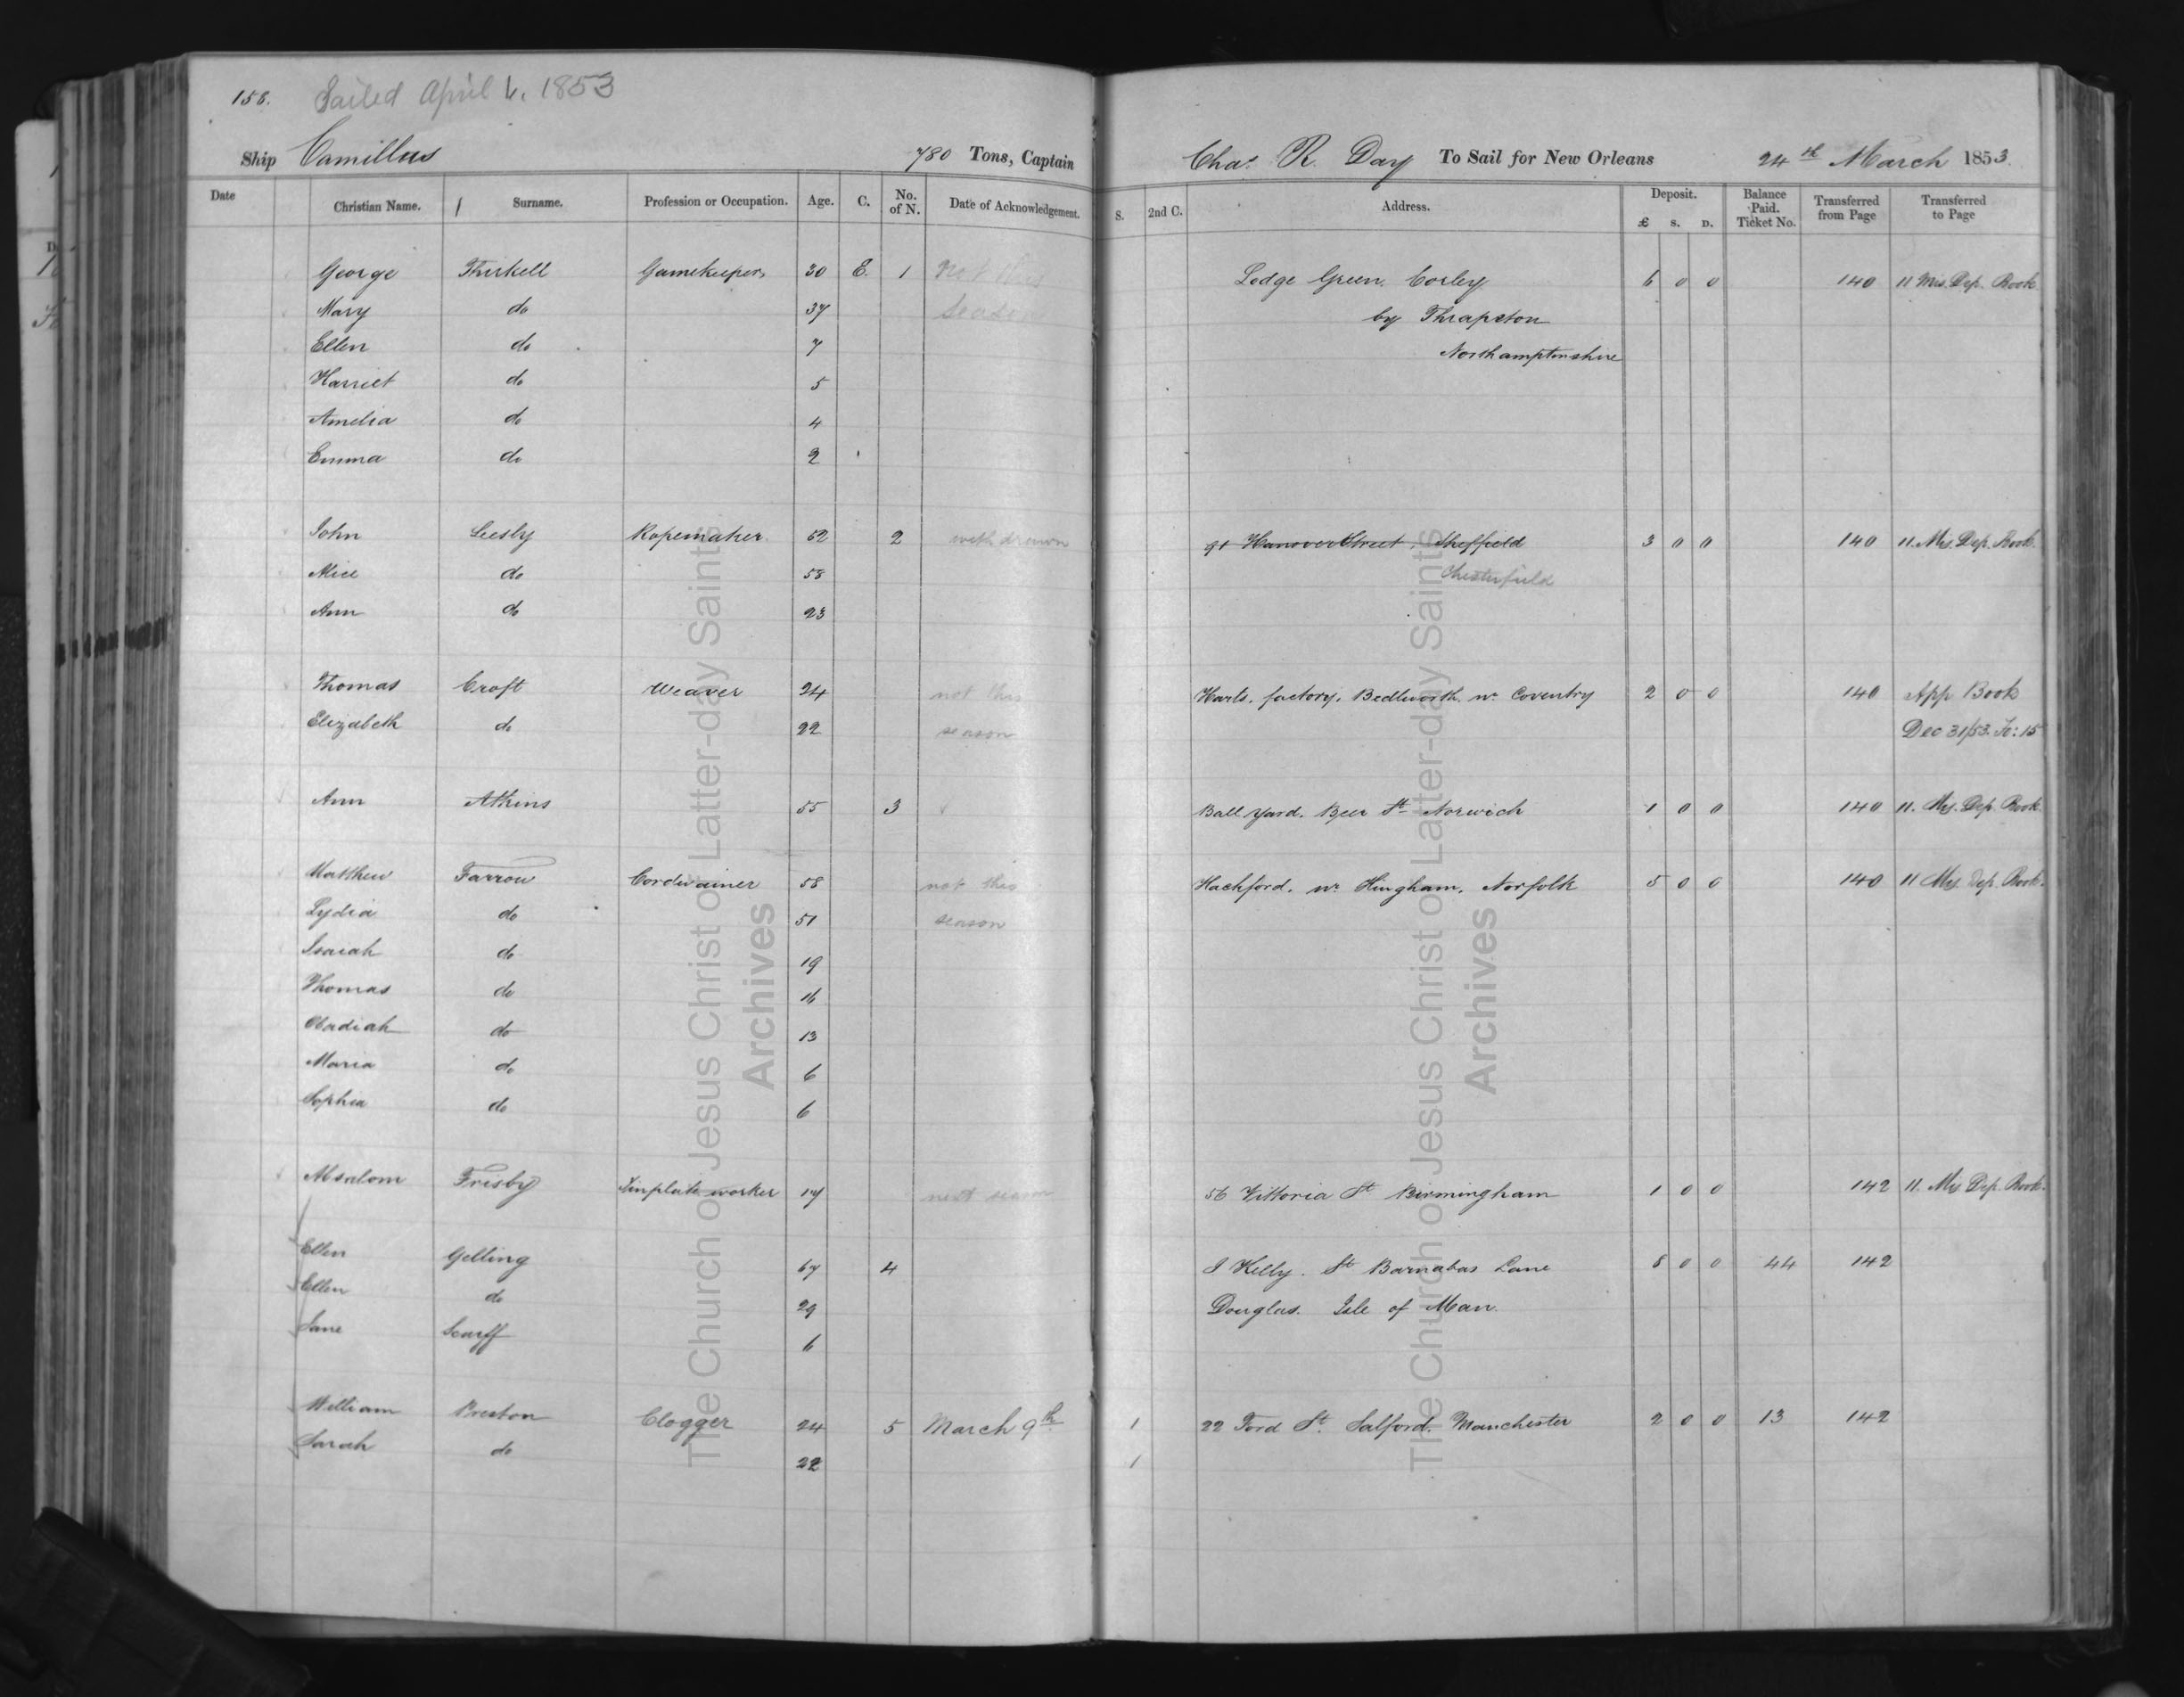 158. Sailed April 6, 1853
Ship Camillus 780 Tons, Captain Chas. R. Day To Sail for New Orleans 24th March 1853.
Date Christian Name. Surname. Profession or Occupation. Age. C. No. of N. Date of Acknowledgement. S. 2nd C. Address. Deposit. £ S. D. Balance Paid. Ticket No. Transferred from Page Transferred to Page
George Thirkell Gamekeeper 30 E. 1 not this Lodge Green. Corley 6 0 0 140 11 Mis. Dep. Book
Mary do 37 season by Thrapston
Ellen do 7 Northamptonshire
Harriet do 5
Amelia do 4
Emma do 2
John Leesly Ropemaker 52 2 withdrawn 91 Hanover Street, Sheffield 3 0 0 140 11. Mis. Dep. Book.
Alice do 58 Chesterfield
Ann do 23
Thomas Croft Weaver 24 not this Harts. factory. Bedworth. nr Coventry 2 0 0 140 App Book
Elizabeth do 22 season Dec 31/53. Fo: 15
Ann Atkins 55 3 Ball Yard. Beer St Norwich 1 0 0 140 11. Mis. Dep. Book
Matthew Farrow Cordwainer 58 not this Hackford. nr Hingham, Norfolk 5 0 0 140 11 Mis. Dep. Book.
Lydia do 51 season
Isaiah do 19
Thomas do 16
Obadiah do 13
Maria do 6
Sophia do 6
Absalom Frisby Tinplate worker 17 next season 56 Vittoria St Birmingham 1 0 0 142 11. Mis Dep. Book.
Ellen Gelling 67 4 J Kelly. St Barnabas Lane 8 0 0 44 142
Ellen do 29 Douglas. Isle of Man.
Jane Scarff 6
William Preston Clogger 24 5 March 9th 1 22 Ford St. Salford. Manchester 2 0 0 13 142
Sarah do 22 1
The Church of Jesus Christ of Latter-day Saints
Archives
The Church of Jesus Christ of Latter-day Saints
Archives